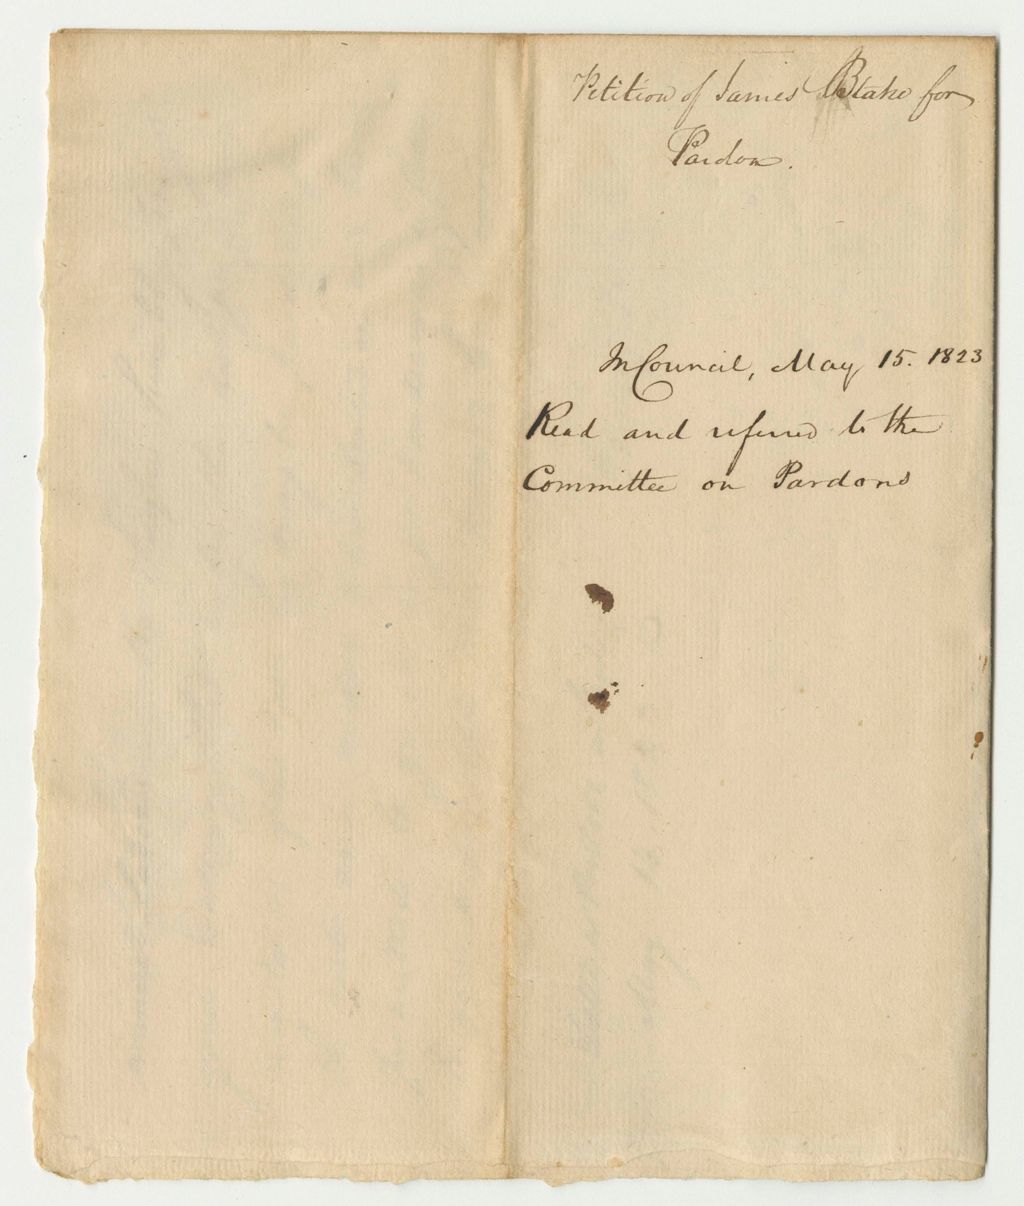 Petition of James Blake for
Pardon.
In Council, May 15. 1823
Read and referred to the
Committee on Pardons